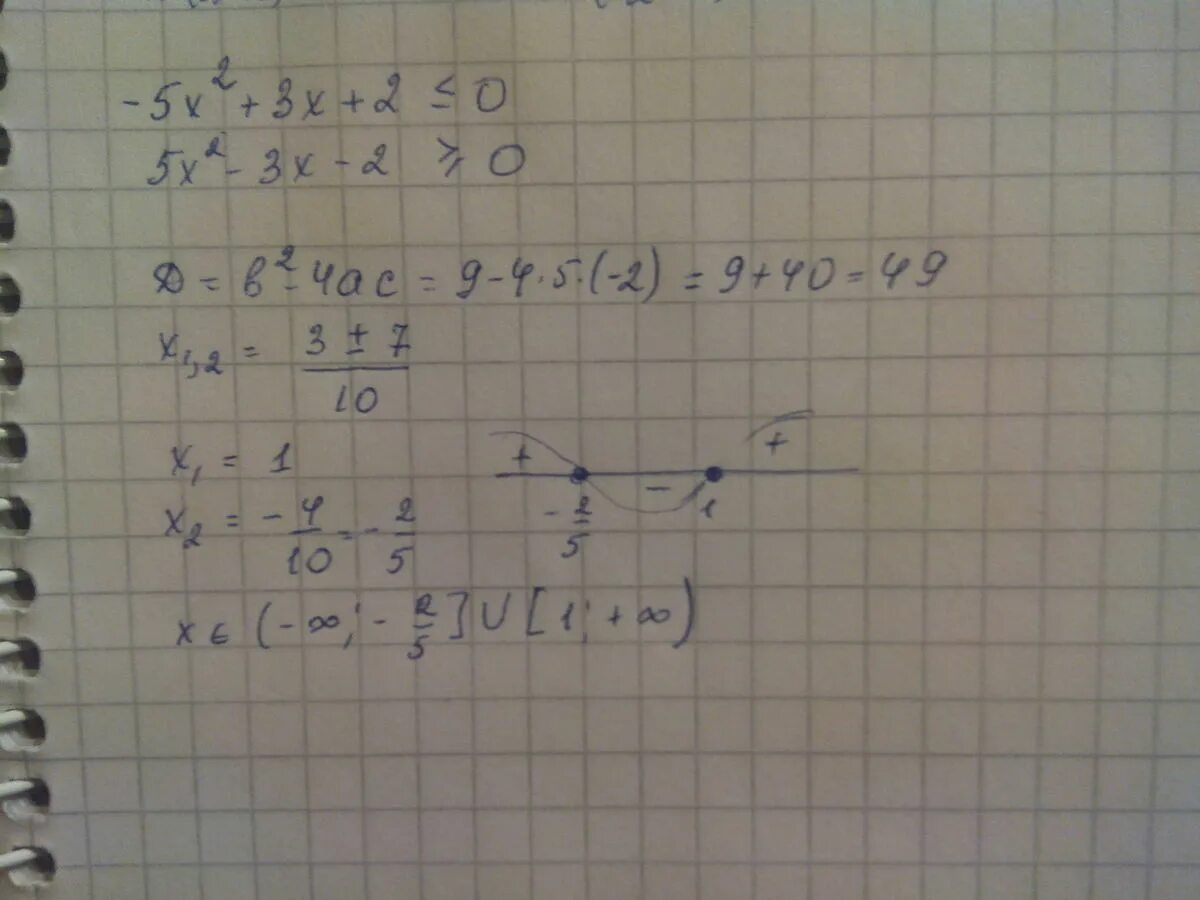 -5x² + 3x + 2 ≤ 0
5x² - 3x - 2 ⩾ 0
Д = в² - 4ac = 9 - 4·5·(-2) = 9 + 40 = 49
x₁,₂ = (3 ± 7)/10
x₁ = 1
x₂ = -4/10 = -2/5
+ - +
-2/5 1
x ∈ (-∞; -2/5] ∪ [1; +∞)